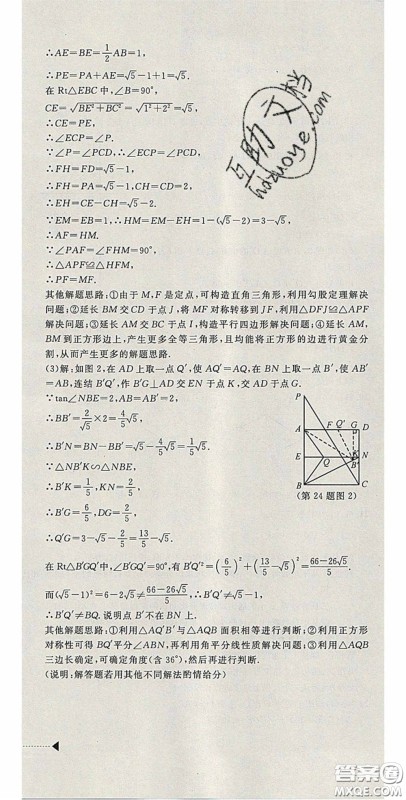 ∴AE=BE=1/2AB=1,
∴PE=PA+AE=√5-1+1=√5.
在 Rt△EBC 中,∠B=90°,
CE=√(BE²+BC²)=√(1²+2²)=√5,
∴CE=PE,
∴∠ECP=∠P.
∵∠P=∠PCD,∴∠ECP=∠PCD,
∴FH=FD=√5-1,
∴FH=PA=√5-1,CH=CD=2,
∴EH=CE-CH=√5-2.
∵EM=EB=1,∴HM=EM-EH=1-(√5-2)=3-√5,
∴AF=HM.
∵∠PAF=∠FHM=90°,
∴△APF≌△HFM,
∴PF=MF.
其他解题思路:①由于 M,F 是定点,可构造直角三角形,利用勾股定理解决
问题;②延长 BM 交 CD 于点 J,将 MF 对称转移到 JF,利用△DFJ≌△APF
解决问题;③延长 AM 交 BC 于点 I,构造平行四边形解决问题;④延长 AM,
BM 到正方形边上,产生更多全等三角形,且均能将正方形的边进行黄金分
割,从而产生更多的解题思路.
(3)解:如图 2,在 AD 上取一点 Q′,使 AQ′=AQ,在 BN 上取一点 B′,使 AB′
=AB,连结 B′Q′,作 B′G⊥AD 交 EN 于点 K,交 AD 于点 G.
∵tan∠NBE=2,AB=AB′=2,
∴BB′=2/√5×2=4/5√5,
∴B′N=BN-BB′=√5-4/5√5=1/5√5.
∵△NB′K∽△NBE,
∴B′K=2/5,KN=1/5,
∴B′G=6/5,DG=1/5,
∴Q′G=3-√5-1/5=13/5-√5.
在 Rt△B′GQ′中,∠B′GQ′=90°,有 B′Q′²=(6/5)²+(13/5-√5)²=(66-26√5)/5
而(√5-1)²=6-2√5≠(66-26√5)/5,∴B′Q′≠√5-1,
∴B′Q′≠BQ.说明点 B′不在 BN 上.
其他解题思路:①利用△AQ′B′与△AQB 面积相等进行判断;②利用正方形
对称性可得 BQ′平分∠ABN,再利用角平分线性质解决问题;③利用△AQB
三边长确定,可确定角度(含 36°),然后再进行判断.
(说明:解答题若用其他不同解法酌情给分)
P
A F Q′ G D
E Q K N
B′
B C
(第 24 题图 2)
互助文档
hdzuoye.com
答案圈
MXQE.COM